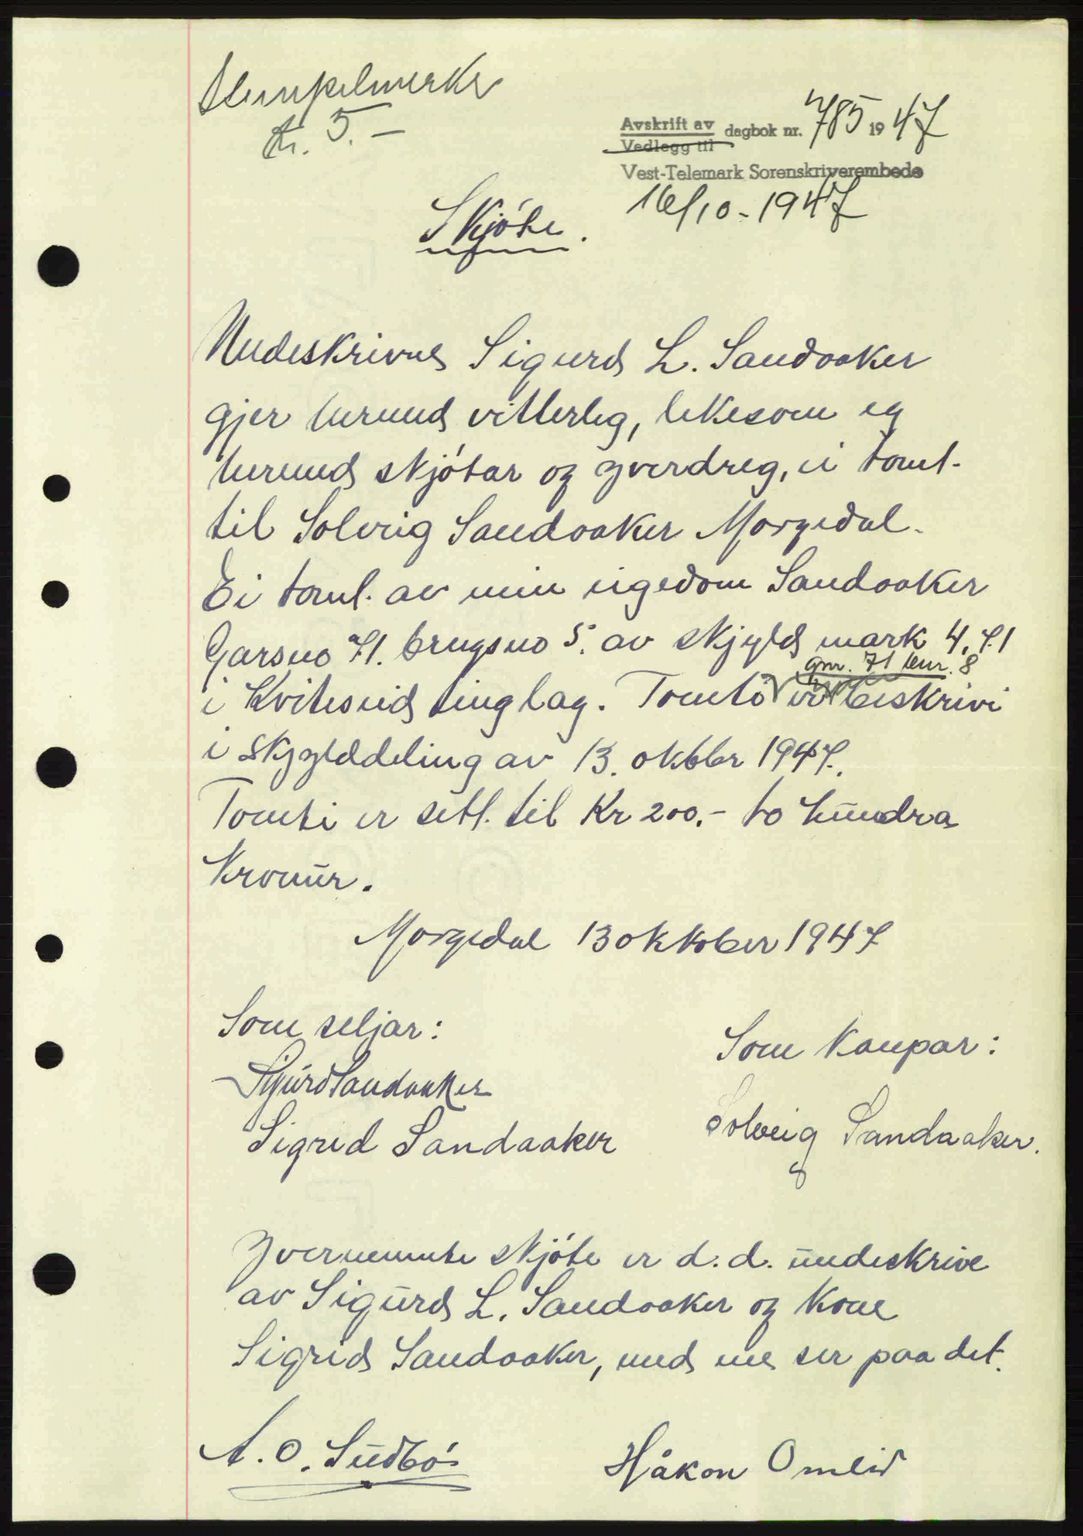 Stempelmerke
kr. 5.-
Avskrift av
Vedlegg til
dagbok nr. 785 1947
Vest-Telemark Sorenskriverembede
16/10-1947
Skjøte.
Undeskrivne Sigurd L. Sandaaker
gjer herund vitterleg, likesom eg
herund skjøtar og yverdreg, ei tomt.
til Solveig Sandaaker Morgedal.
Ei tomt. av min eigedom Sandaaker
Garsno 71. brugsno 5. av skjyld mark 4,71
gnr. 71 bnr. 8
i Kviteseid tinglag. Tomti er beskrivi
i skjylddeling av 13. oktbr 1947.
Tomti er sett. til Kr 200.- to hundra
Kronur.
Morgedal 13 oktober 1947
Som seljar:
Som Kaupar:
Sigurd Sandaaker
Sigrid Sandaaker
Solveig Sandaaker.
Yvernemnte skjøte er d.d. undeskrive
av Sigurd L. Sandaaker og Kone
Sigrid Sandaaker, med me ser paa det.
A. O. Sudbø
Håkon Omlid